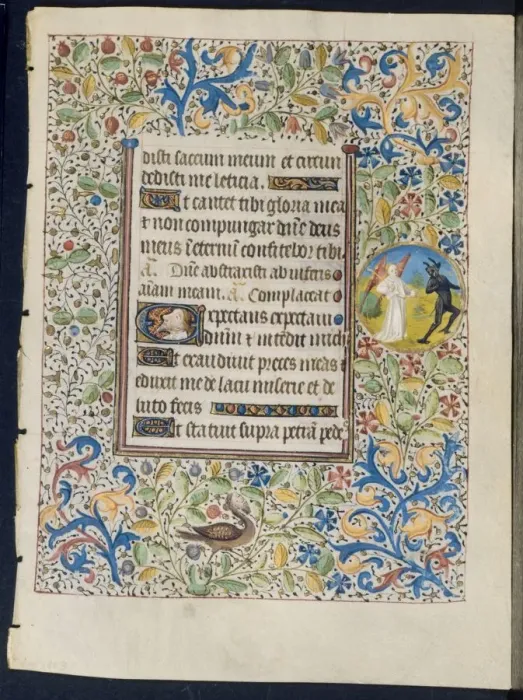 disti saccum meum et circun
dedisti me leticia.
Ut cantet tibi gloria mea
et non compungar dñe deus
meus ĩ eternũ confitebor tibi.
añ. Dñe abstraxisti ab inferis
aĩam meam. añ. Complaceat
Expectans expectaui
dominũ et intẽdit michi
Et exaudiuit preces meas et
eduxit me de lacu miserie et de
luto fecis
Et statuit supra petrã pede